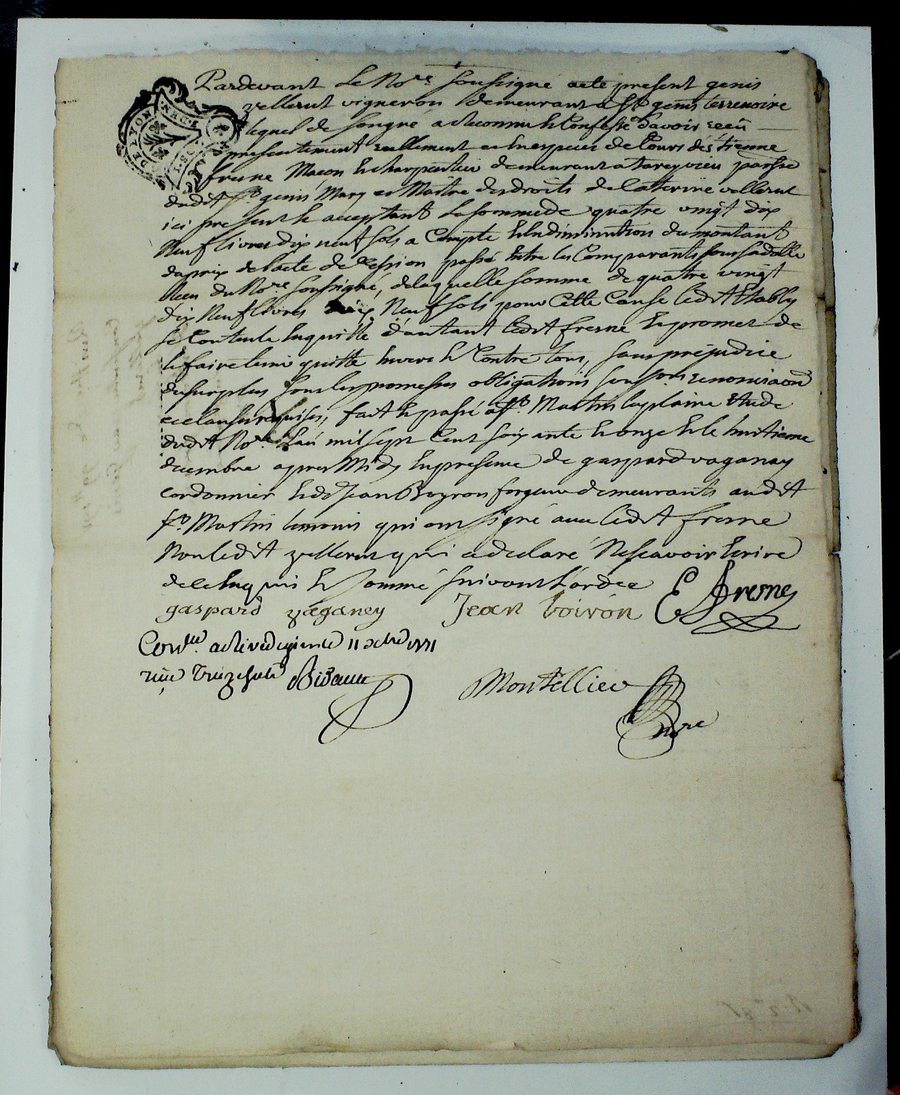 Pardevant Le No.re soussigné a eté present genis
vellerut vigneron demeurant a St genis terrenoire
lequel de son gré a deconnu et Confessé davoir reçu
presentement reellement en Especes de Cours des Etienne
fresne Macon et charpentier demeurant a tareyvieu parsse
dudit St genis Mary et Maitre des droits de Catterine vellerut
ici presente et acceptant La somme de quatre vingt dix
Neuf livres dix neuf sols a Compte et En diminution du montant
du prix de lacte de Cession passé Entre les Comparants
Recu du No.re soussigné, de laquelle somme de quatre vingt
dix Neuf livres dix Neuf sols pour Cette Cause ledit Etably
se Contente En quitte dautant ledit fresne Et promet de
le faire tenir quitte Envers Et Contre tous, sans prejudice
du surplus sous les promesses obligations soumis.ons renonciaons
et clauses requises, fait Et passé a St Martin la plaine Etude
dudit No.re L'an mil sept Cent soixante Et onze Et le huitieme
decembre apres Midy En presence de gaspard vaganay
Cordonnier Et de Jean Boyron forgeur demeurants audit
St Martin temoins qui ont signé avec ledit fresne
Non ledit vellerut qui a declaré Ne scavoir Ecrire
de ce Enquis Et sommé suivant Lordce
gaspard vaganey Jean boiron E fresne
Con.lle a rivedegier le 11 xbre 1771
reçu treize sols
Montellier
nore
DE LYON